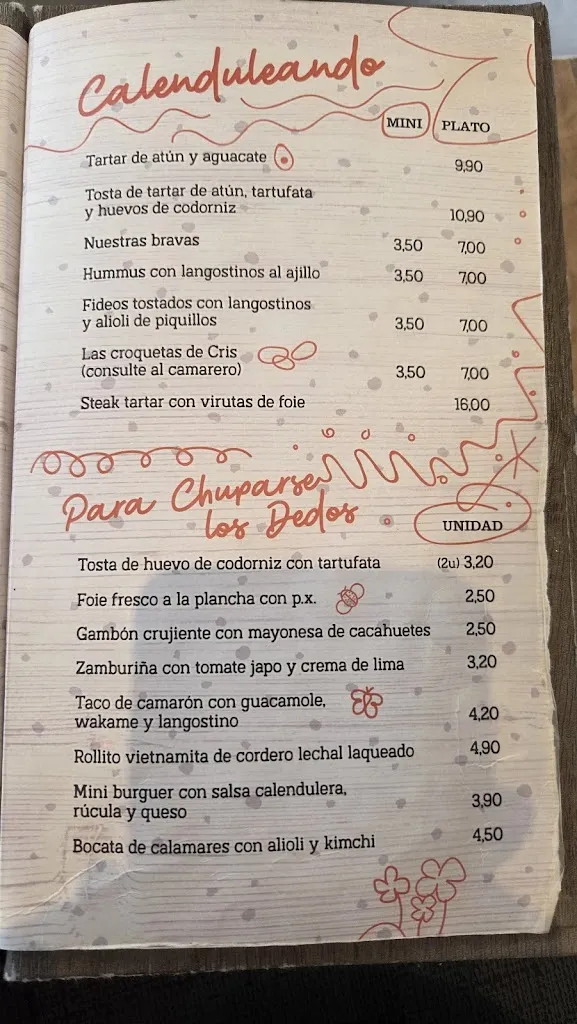 Calenduleando
MINI PLATO
Tartar de atún y aguacate 9,90
Tosta de tartar de atún, tartufata
y huevos de codorniz 10,90
Nuestras bravas 3,50 7,00
Hummus con langostinos al ajillo 3,50 7,00
Fideos tostados con langostinos
y alioli de piquillos 3,50 7,00
Las croquetas de Cris
(consulte al camarero) 3,50 7,00
Steak tartar con virutas de foie 16,00
Para Chuparse
los Dedos
UNIDAD
Tosta de huevo de codorniz con tartufata (2u) 3,20
Foie fresco a la plancha con p.x. 2,50
Gambón crujiente con mayonesa de cacahuetes 2,50
Zamburiña con tomate japo y crema de lima 3,20
Taco de camarón con guacamole,
wakame y langostino 4,20
Rollito vietnamita de cordero lechal laqueado 4,90
Mini burguer con salsa calendulera,
rúcula y queso 3,90
Bocata de calamares con alioli y kimchi 4,50